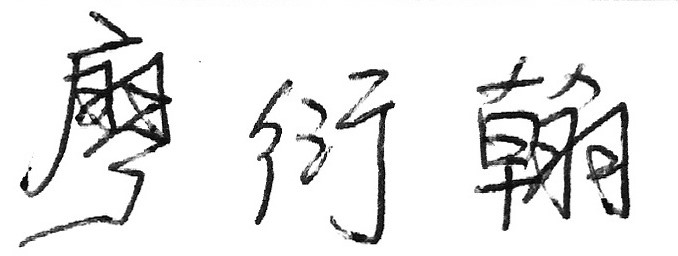 廖衍翰